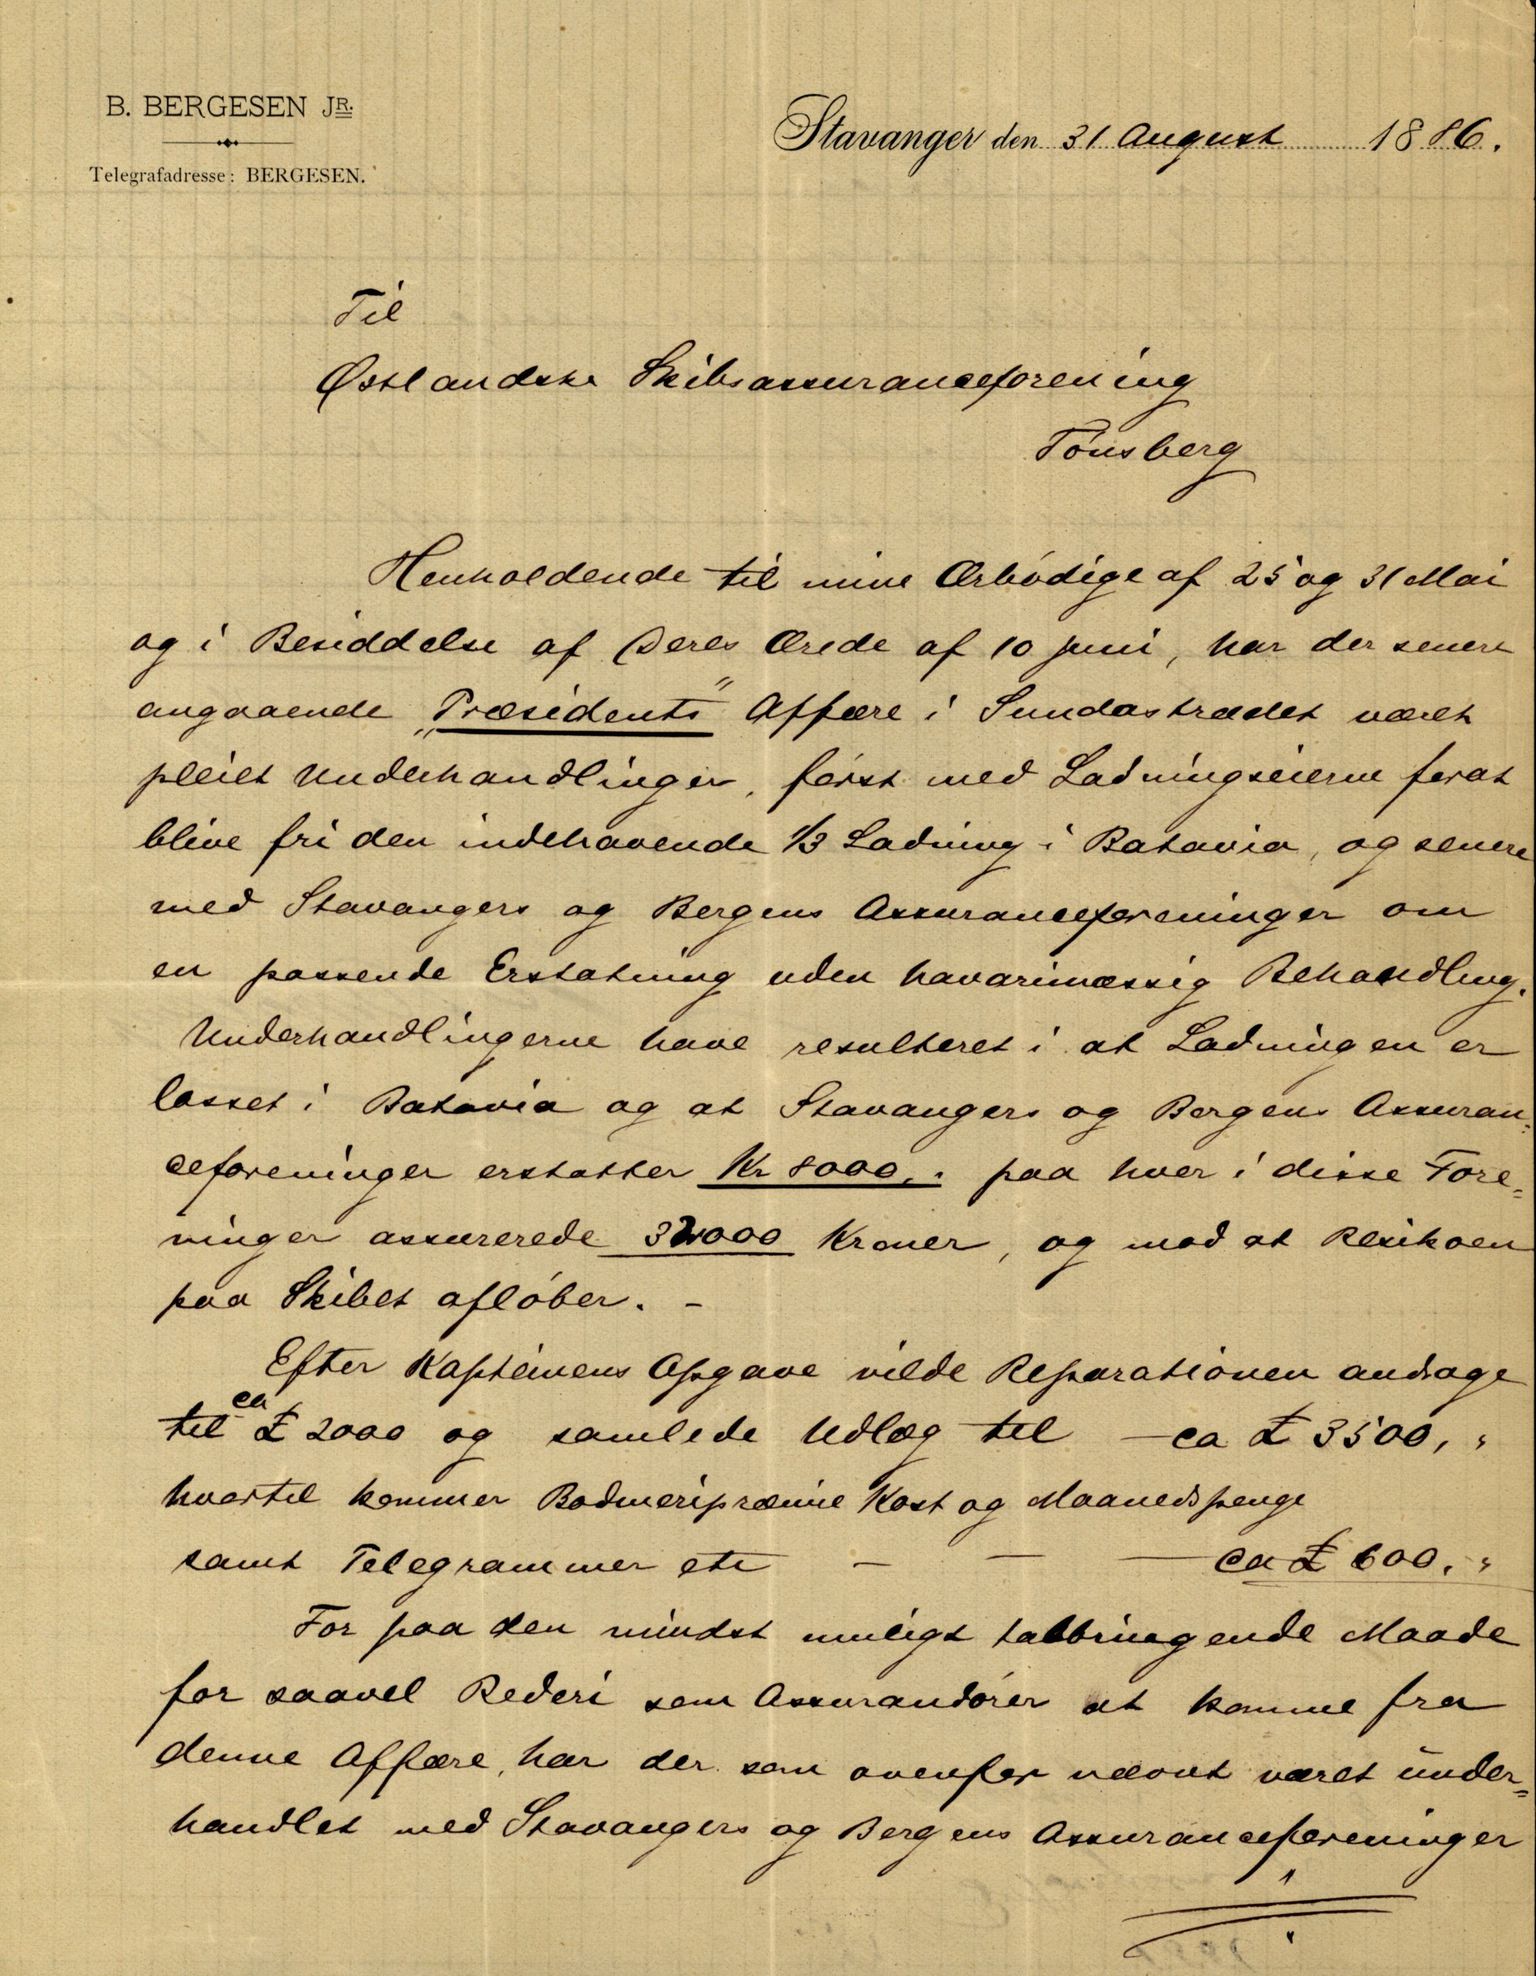 B. BERGESEN JR.
Telegrafadresse: BERGESEN.
Stavanger den 31 August 1886.
Til
Østlandske Skibsassuranceforening
Tønsberg
Henholdende til mine Ærbödige af 25 og 31 Mai
og i Besiddelse af Deres Ærede af 10 juni, har der senere
angaaende „Præsidents" Affære i Sundastrædet været
pleiet Underhandlinger, först med Ladningseierne forat
blive fri den indehavende 1/3 Ladning i Batavia, og senere
med Stavangers og Bergens Assuranceforeninger om
en passende Erstatning uden havarimæssig Behandling.
Underhandlingerne have resulteret i at Ladningen er
losset i Batavia og at Stavangers og Bergens Assuran=
ceforeninger erstatter Kr 8000,. paa hver i disse Fore=
ninger assurerede 32000 Kroner, og mod at Resikoen
paa Skibet aflöber. -
Efter Kapteinens Opgave vilde Reparationen andrage
til ca £ 2000 og samlede Udlæg til — ca £ 3500, "
hvortil kommer Bodmeripræmie Kost og Maanedspenge
samt Telegrammer etc — — — ca £ 600. "
For paa den mindst muligt tabbringende Maade
for saavel Rederi som Assurandörer at komme fra
denne Affære, har der som ovenfor nævnt været under=
handlet med Stavangers og Bergens Assuranceforeninger